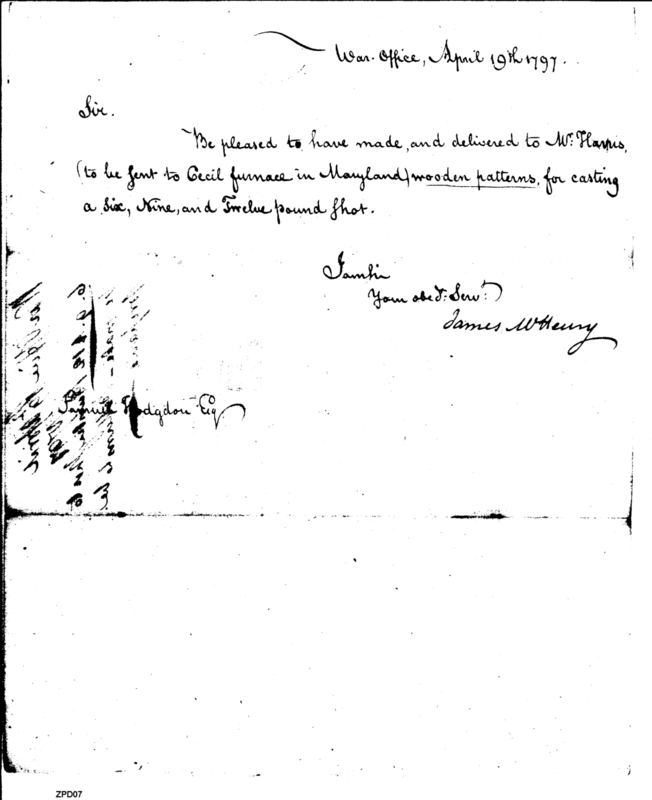 War Office, April 19th 1797.
Sir.
Be pleased to have made, and delivered to Mr. Harris,
(to be sent to Cecil furnace in Maryland) wooden patterns, for casting
a Six, Nine, and Twelve pound shot.
I am Sir
Your obedt. Servt.
James McHenry
Samuel Hodgdon Esq
ZPD07